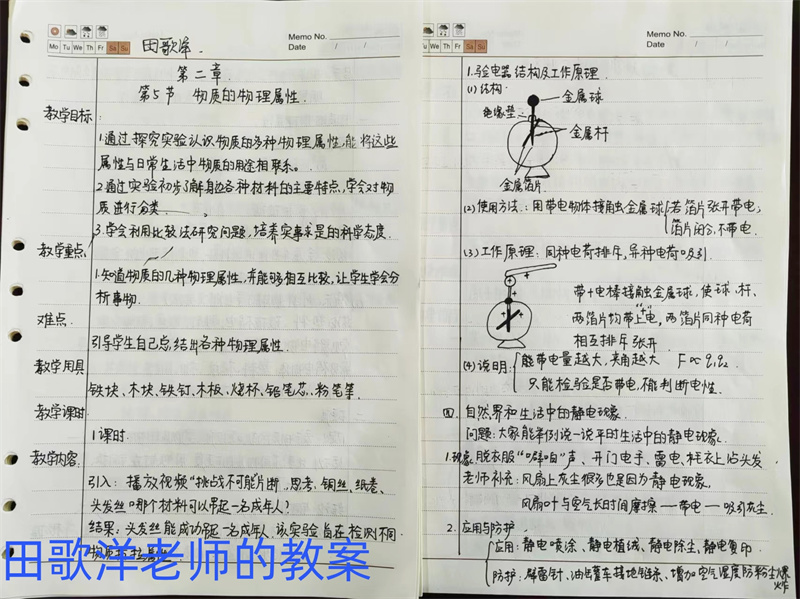 Mo Tu We Th Fr Sa Su
Memo No.
Date / /
田歌洋.
第二章.
第5节 物质的物理属性.
教学目标:
1.通过探究实验认识物质的多种物理属性,能将这些
属性与日常生活中物质的用途相联系。
2.通过实验初步了解身边各种材料的主要特点,学会对物
质进行分类.
3.学会利用比较法研究问题,培养实事求是的科学态度.
教学重点:
1.知道物质的几种物理属性,并能够相互比较,让学生学会分
析事物.
难点:
引导学生自己总结出各种物理属性.
教学用具
铁块、木块、铁钉、木板、烧杯、铅笔芯、粉笔等.
教学课时:
1课时.
教学内容:
引入: 播放视频"挑战不可能"片断.思考:钢丝、纸卷、
头发丝哪个材料可以吊起一名成年人?
结果:头发丝能成功吊起一名成年人.该实验旨在检测不同
田歌洋老师的教案
Tu We Th Fr Sa Su
Memo No.
Date / /
1.验电器结构及工作原理.
(1)结构:
金属球
绝缘垫
金属杆
金属箔片
(2)使用方法: 用带电物体接触金属球 若箔片张开带电;
箔片闭合,不带电.
(3)工作原理: 同种电荷排斥,异种电荷吸引.
带+电棒接触金属球,使球、杆、
两箔片均带上"+"电,两箔片同种电荷
相互排斥张开.
(4)说明: 能带电量越大,夹角越大 F∝q₁q₂
只能检验是否带电,不能判断电性.
四. 自然界和生活中的静电现象.
问题:大家能举例说一说平时生活中的静电现象.
1.现象:脱衣服"噼啪"声、开门电手、雷电、毛衣上沾头发
老师补充:风扇上灰尘很多也是因为静电现象.
风扇叶与空气长时间摩擦——带电——吸引灰尘
2. 应用与防护.
应用:静电喷涂、静电植绒、静电除尘,静电复印.
防护:避雷针、油罐车接地链条、增加空气湿度防粉尘爆
炸